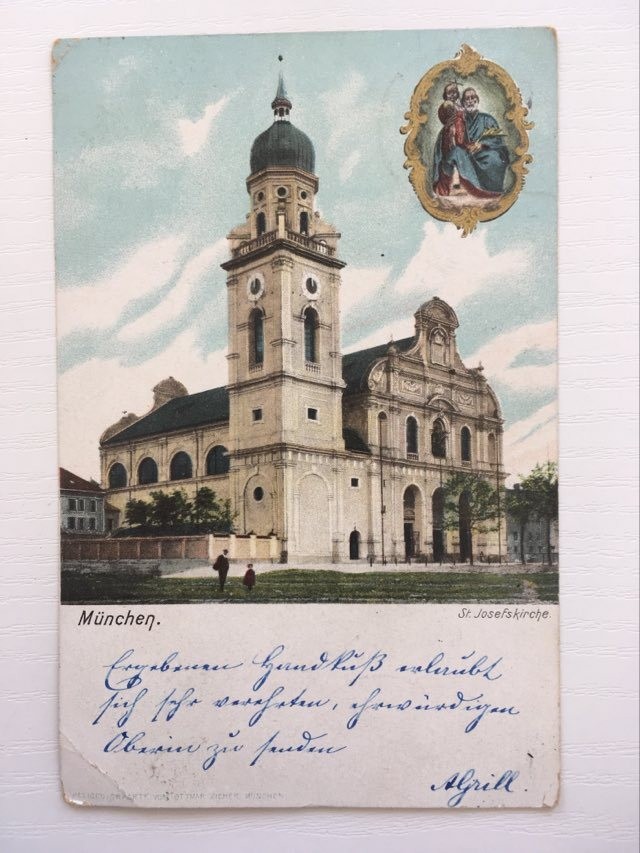 München.
St. Josefskirche.
Ergebenen Handkuß erlaubt
sich sehr verehrten, ehrwürdigen
Oberin zu senden
AGrill.
OTTMAR ZIEHER, MÜNCHEN